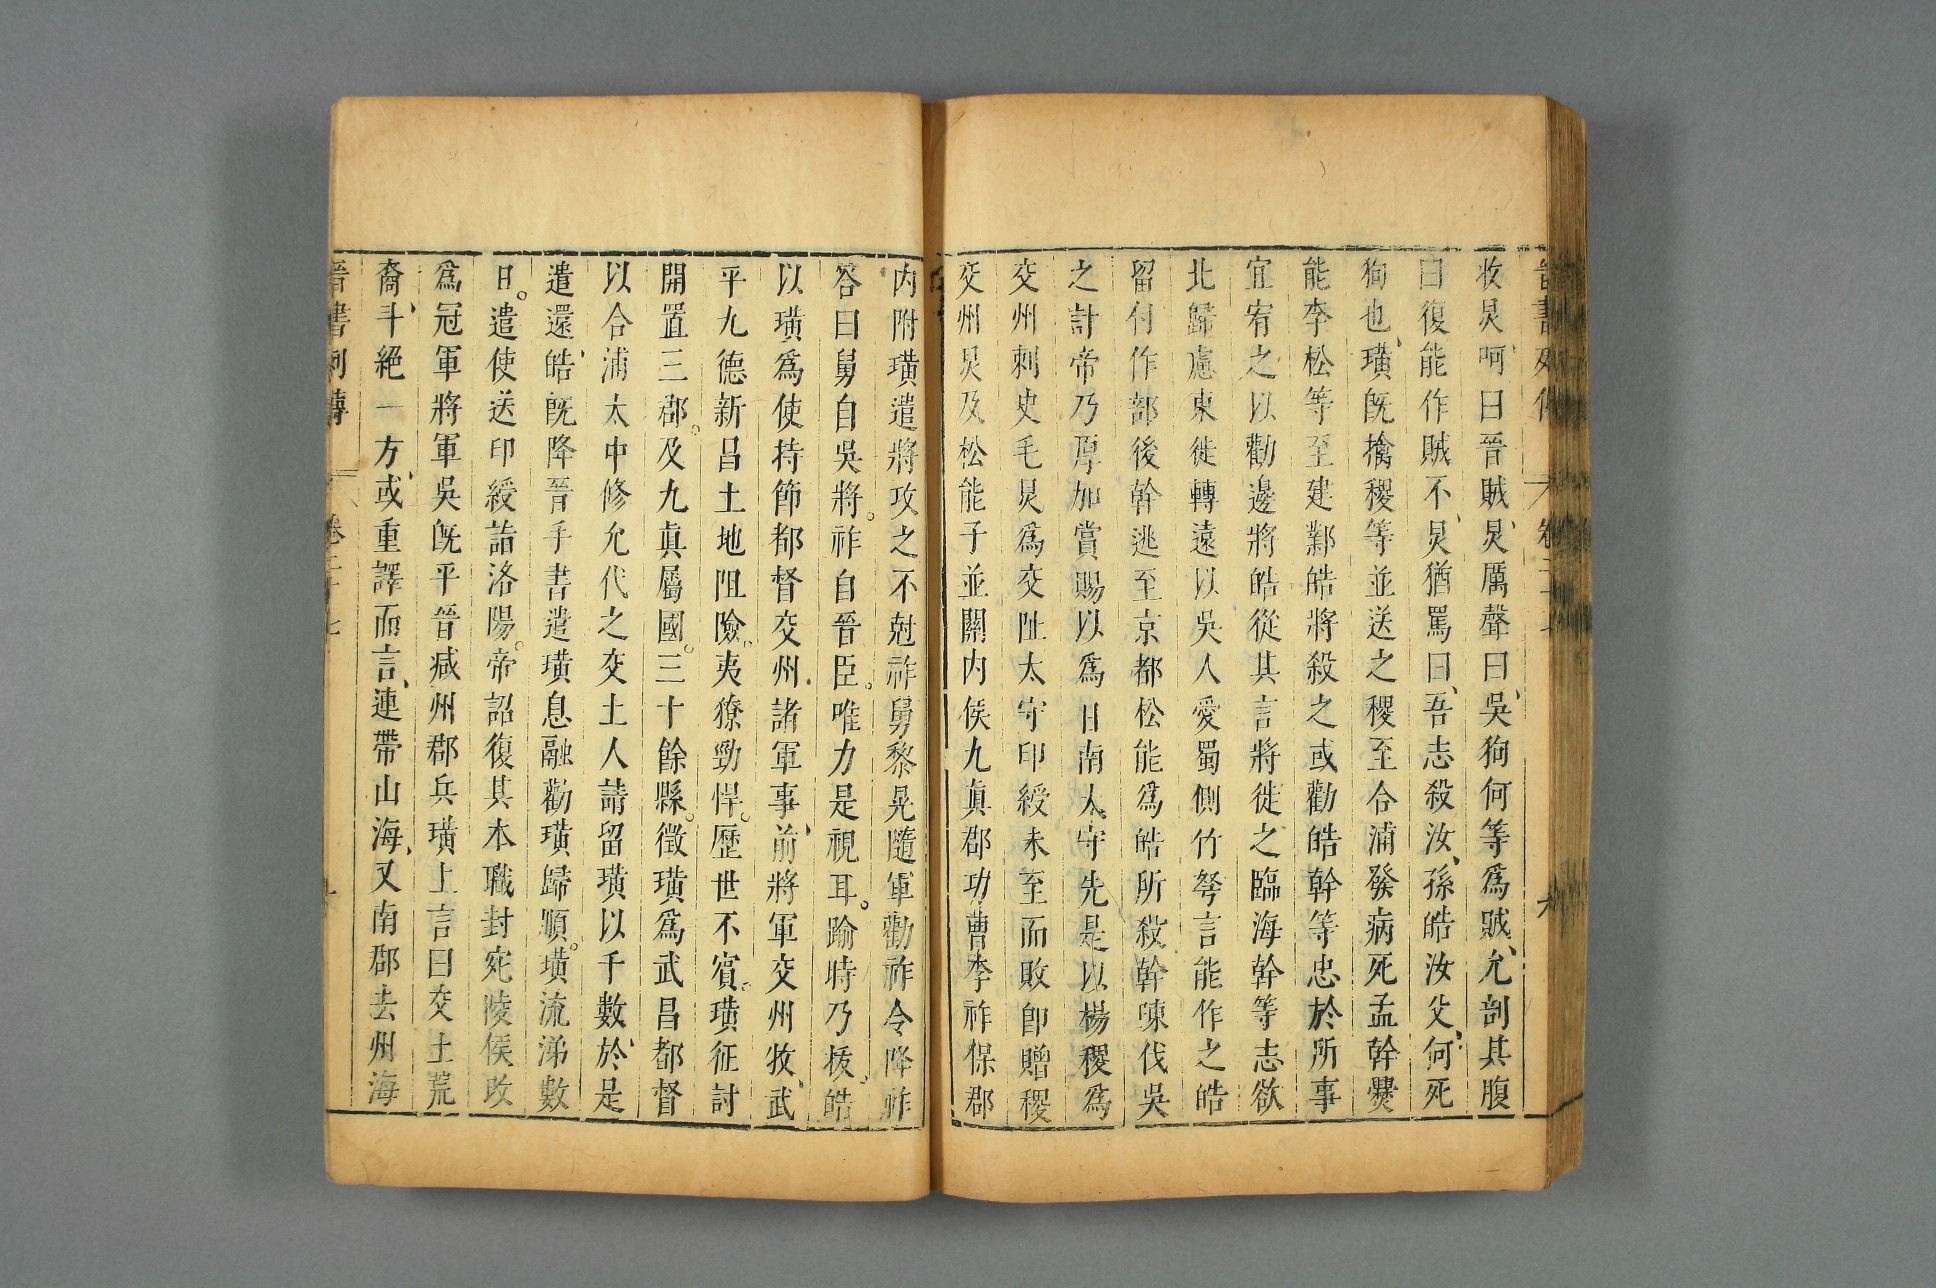 收炅呵曰晉賊炅厲聲曰吳狗何等爲賊允剖其腹
曰復能作賊不炅猶罵曰吾志殺汝孫皓汝父何死
狗也璜旣擒稷等並送之稷至合浦發病死孟幹爨
能李松等至建鄴皓將殺之或勸皓幹等忠於所事
宜宥之以勸邊將皓從其言將徙之臨海幹等志欲
北歸慮東徙轉遠以吳人愛蜀側竹弩言能作之皓
留付作部後幹逃至京都松能爲皓所殺幹陳伐吳
之計帝乃厚加賞賜以爲日南太守先是以楊稷爲
交州刺史毛炅爲交阯太守印綬未至而敗卽贈稷
交州炅及松能子並關內侯九眞郡功曹李祚保郡
内附璜遣將攻之不尅祚舅黎晃隨軍勸祚令降祚
答曰舅自吳將祚自晉臣唯力是視耳踰時乃拔皓
以璜爲使持節都督交州諸軍事前將軍交州牧武
平九德新昌土地阻險夷獠勁悍歷世不賓璜征討
開置三郡及九眞屬國三十餘縣徵璜爲武昌都督
以合浦太守修允代之交土人請留璜以千數於是
遣還皓旣降晉手書遣璜息融勸璜歸順璜流涕數
日遣使送印綬詣洛陽帝詔復其本職封宛陵侯改
爲冠軍將軍吳旣平晉减州郡兵璜上言曰交土荒
裔斗絕一方或重譯而言連帶山海又南郡去州海
晉書列傳 卷二十七